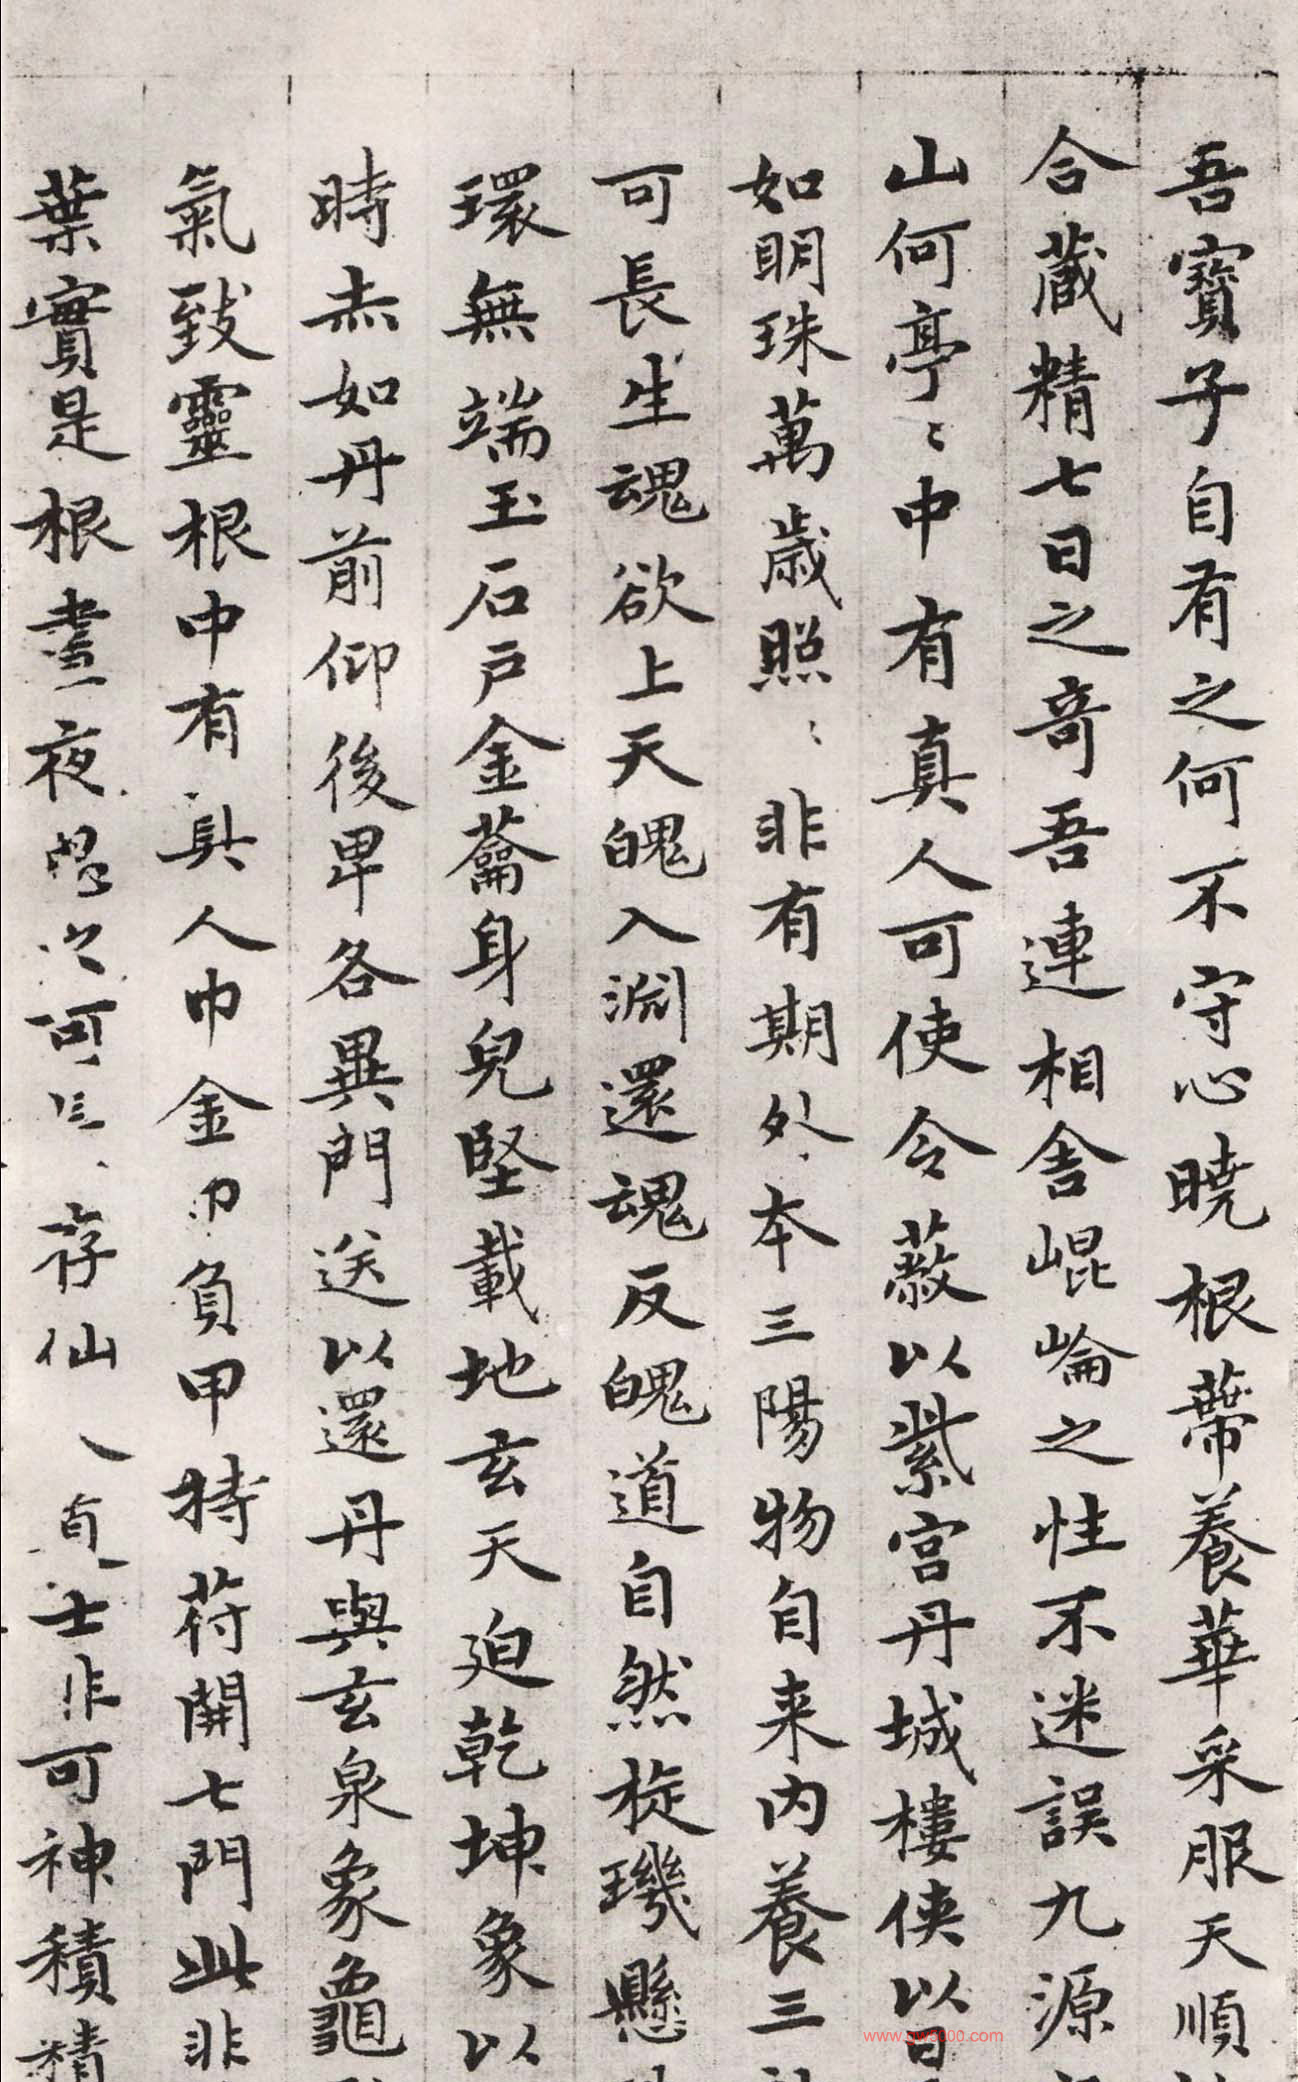 吾寶子自有之何不守心曉根蔕養華采服天順
合藏精七日之奇吾連相舍崐崘之性不迷誤九源
山何亭〻中有真人可使令蔽以紫宮丹城樓俠以日
如明珠萬歲照〻非有期外本三陽物自来内養三
可長生魂欲上天魄入淵還魂反魄道自然㫌璣懸
環無端玉石戶金蘥身皃堅載地玄天迫乾坤象以
時赤如丹前仰後卑各異門送以還丹與玄泉象龜
氣致靈根中有真人巾金巾負甲持苻開七門此非
葉實是根晝夜思之可長存仙人道士非可神積精
www.gw5200.com